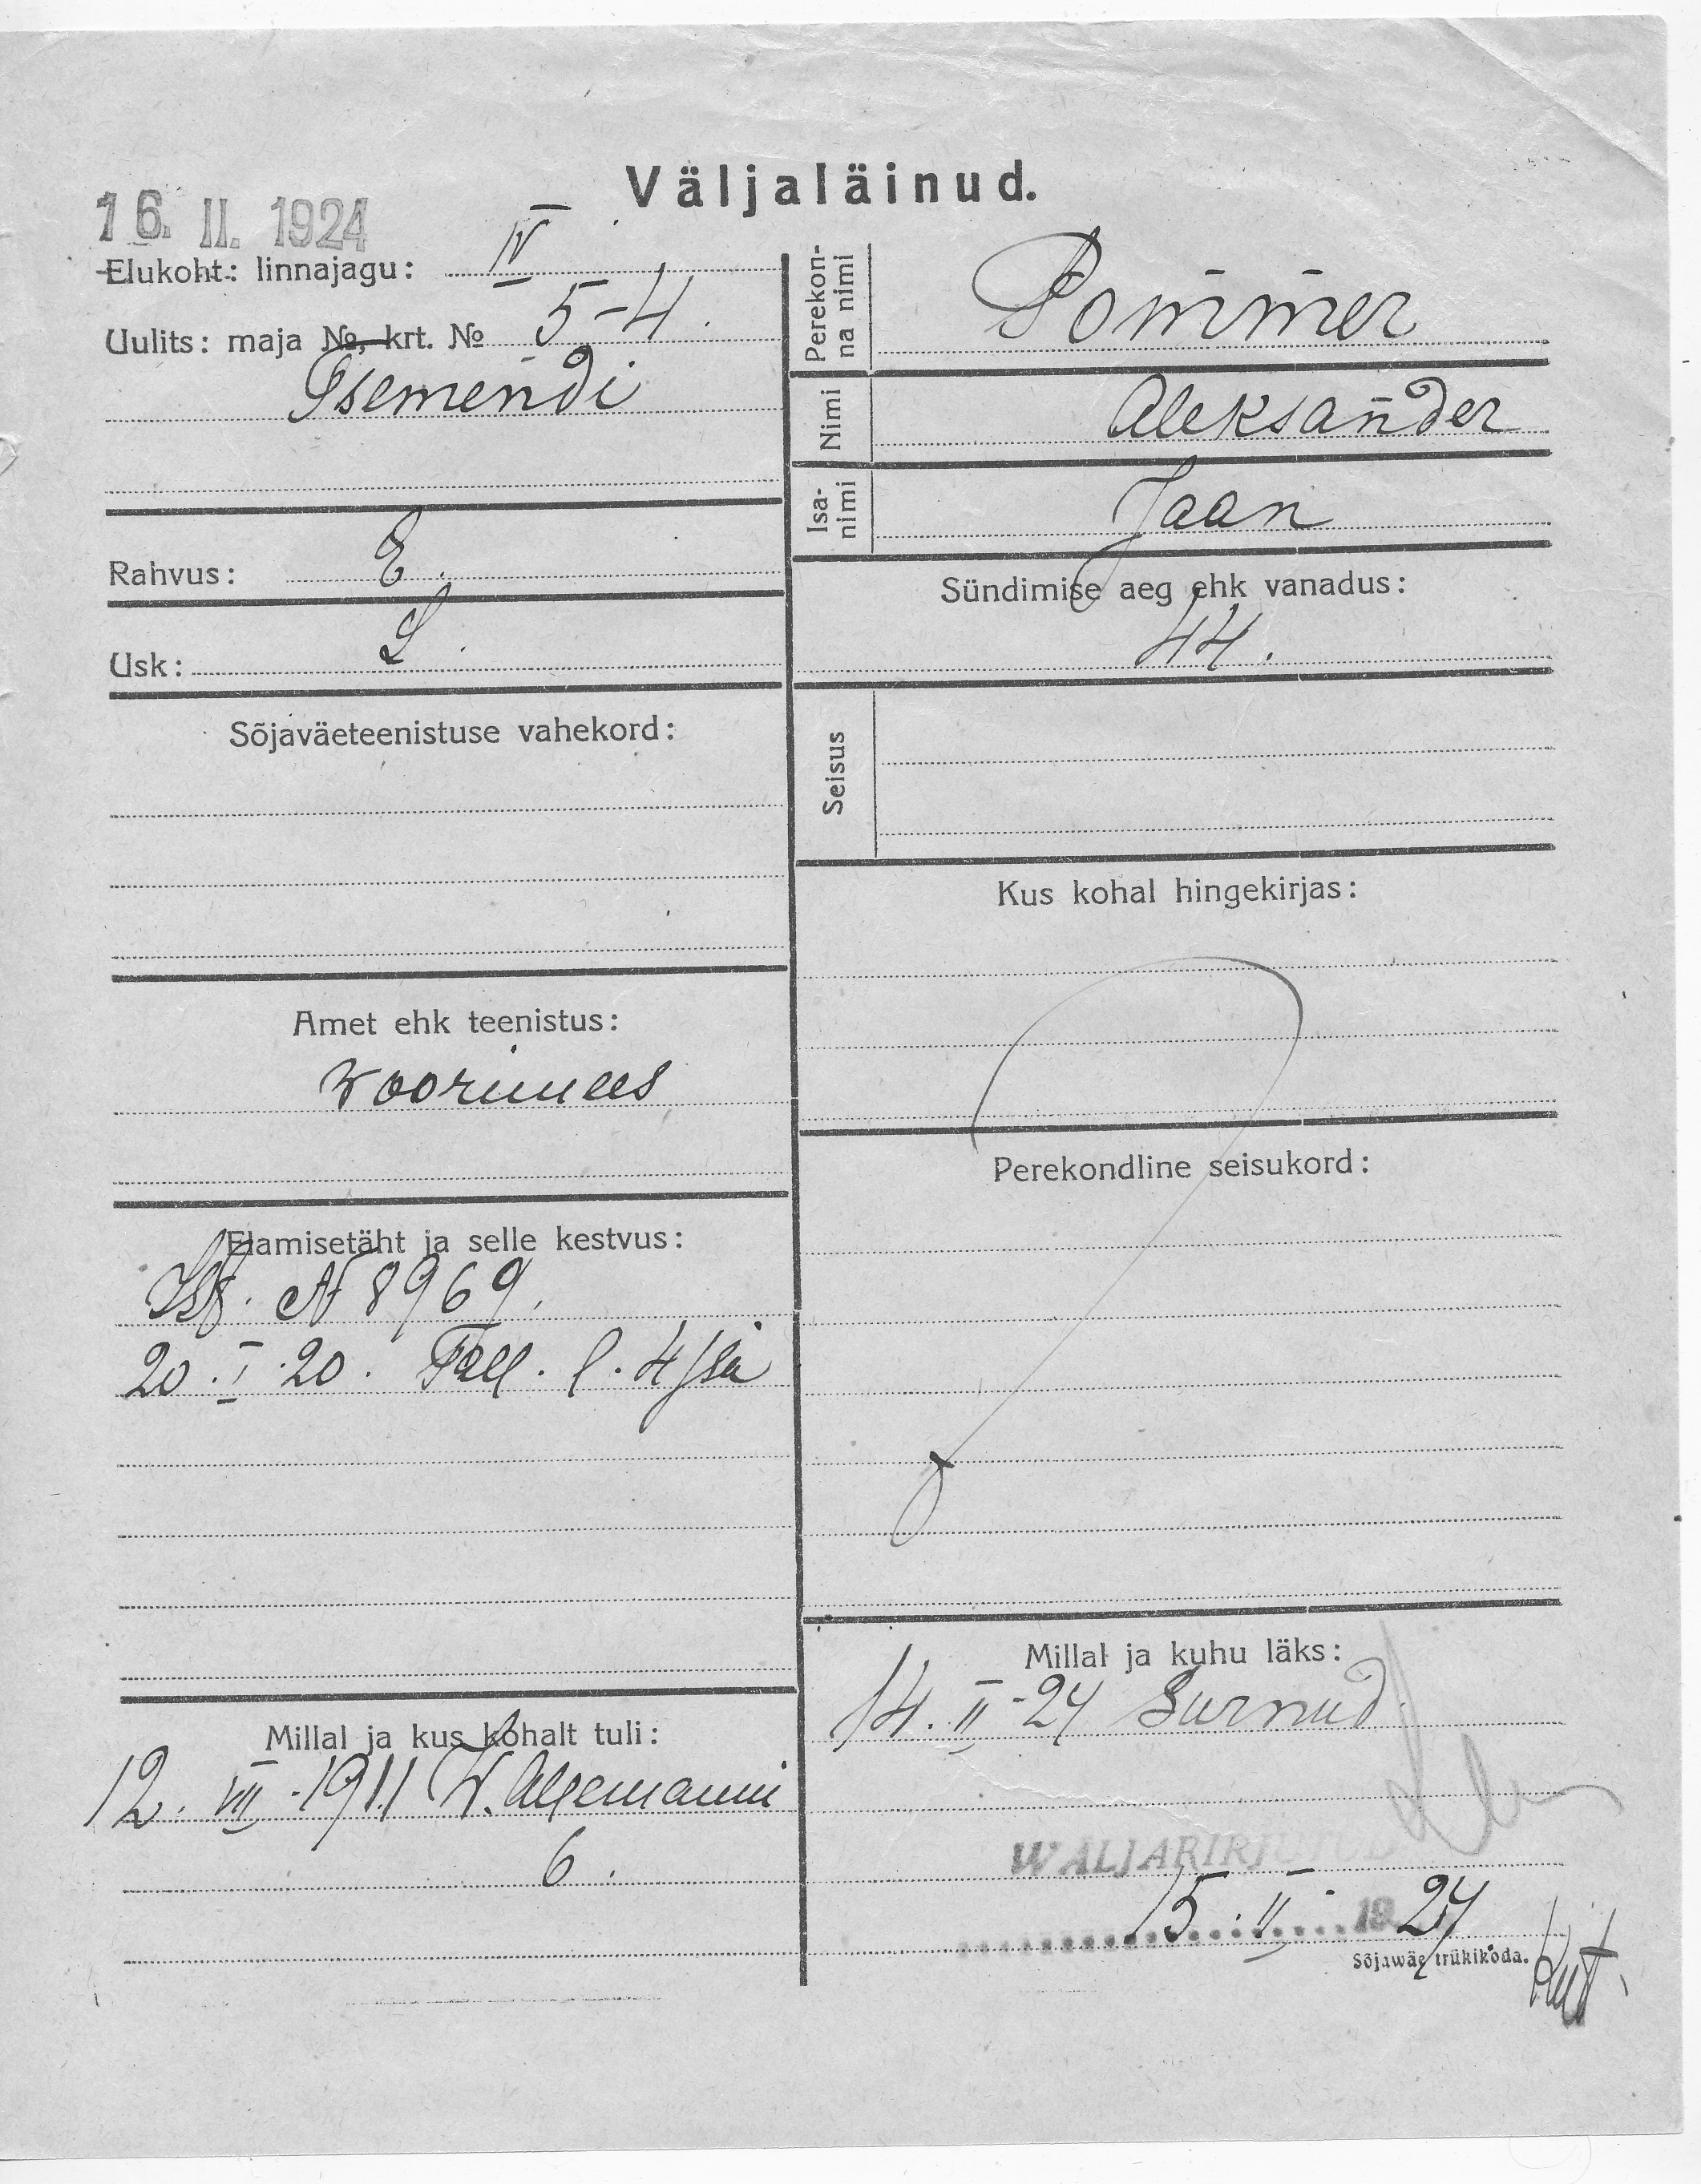 Väljaläinud.
16. II. 1924
Elukoht: linnajagu: IV
Uulits: maja №, krt. № 5-4.
Perekonna nimi
Pommer
Nimi
Aleksander
Isanimi
Jaan
Rahvus: E.
Usk: L.
Sündimise aeg ehk vanadus:
44.
Sõjaväeteenistuse vahekord:
Seisus
Kus kohal hingekirjas:
Amet ehk teenistus:
woorimees
Perekondline seisukord:
Elamisetäht ja selle kestvus:
N 8969.
20. I. 20. Tall. l. 4
Millal ja kus kohalt tuli:
12. VII. 1911 W.
6.
Millal ja kuhu läks:
14. II -24 Surnud.
WALJAKIRJUTUD
15. II. 1924
Sõjawäe trükikoda.